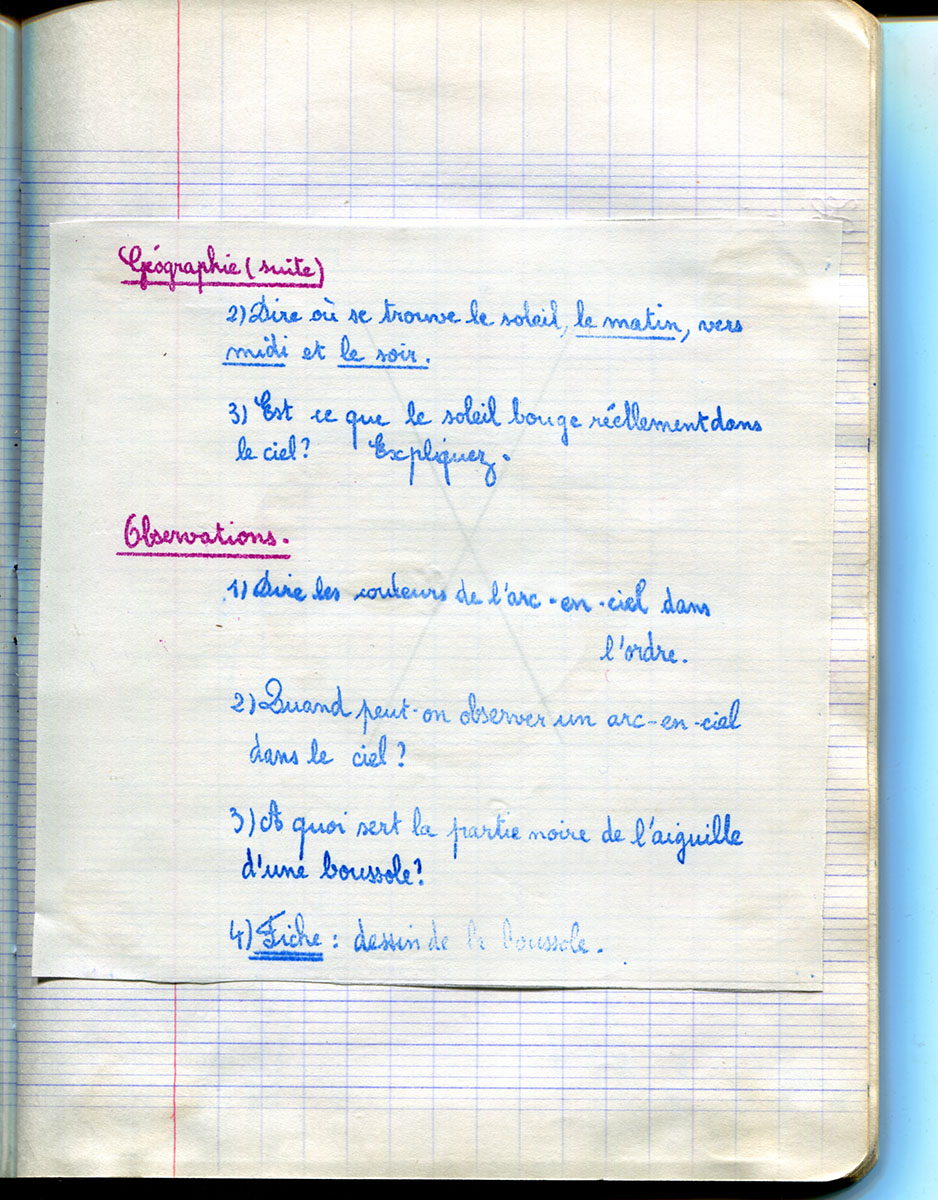 Géographie (suite)
2) Dire où se trouve le soleil, le matin, vers
midi et le soir.
3) Est ce que le soleil bouge réellement dans
le ciel? Expliquez.
Observations.
1) Dire les couleurs de l'arc-en-ciel dans
l'ordre.
2) Quand peut-on observer un arc-en-ciel
dans le ciel?
3) A quoi sert la partie noire de l'aiguille
d'une boussole?
4) Fiche : dessin de la boussole.